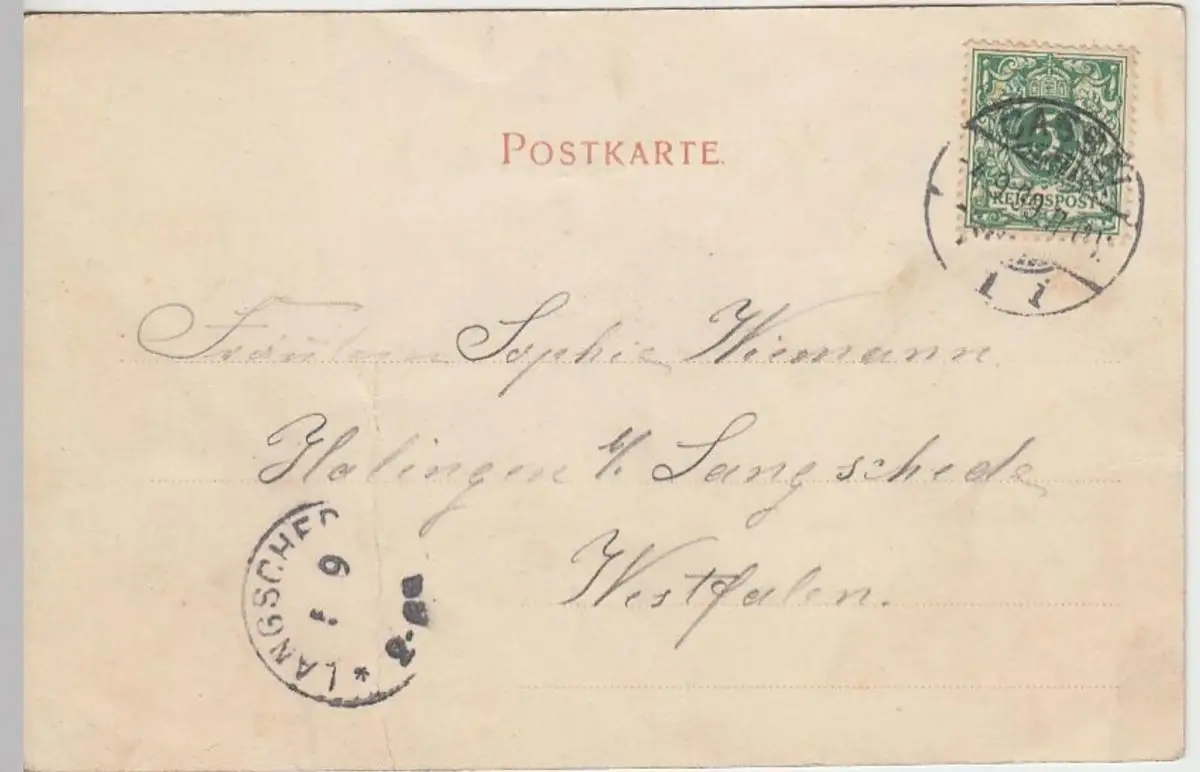 POSTKARTE.
CASSEL
5
REICHSPOST
1 i
Fräulein Sophie Wiemann
Halingen b/. Langschede
Westfalen.
* LANGSCHED
9